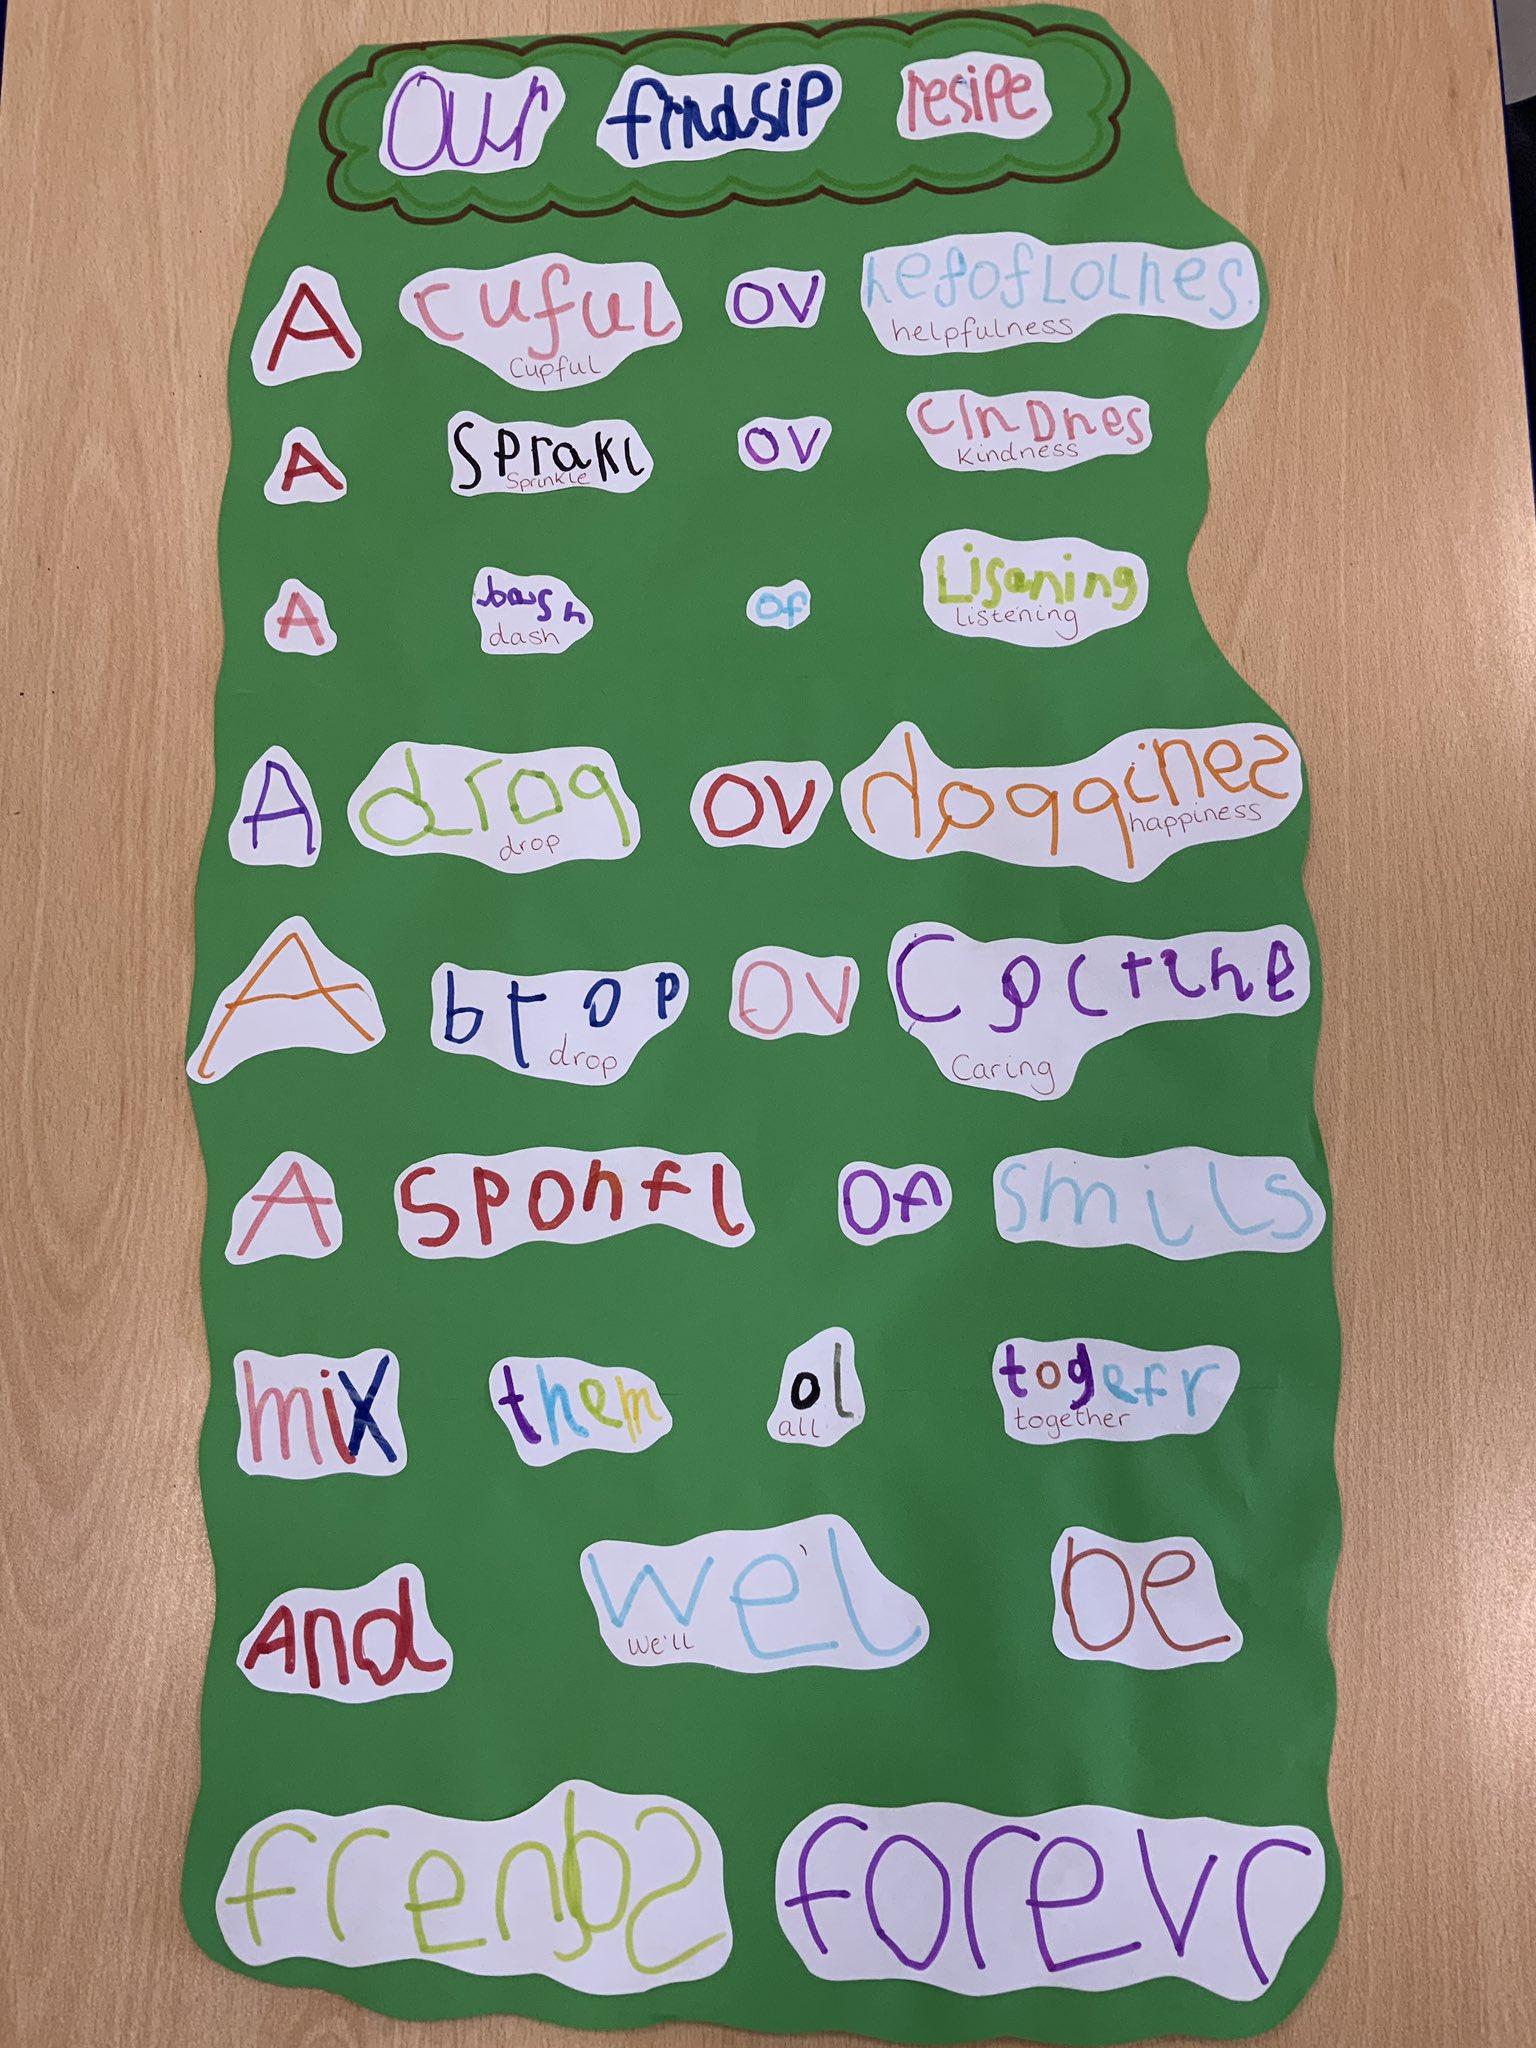 Our frndsip resipe
A cuful ov hefoflolnes.
Cupful helpfulness
A Sprakl ov cindnes
Sprinkle Kindness
A bash of Lisening
dash listening
A droq ov hoqqines
drop happiness
A brop ov
drop Caring
A sponfl of smils
mix them ol togefr
all together
And we'l be
we'll
frenbs forevr